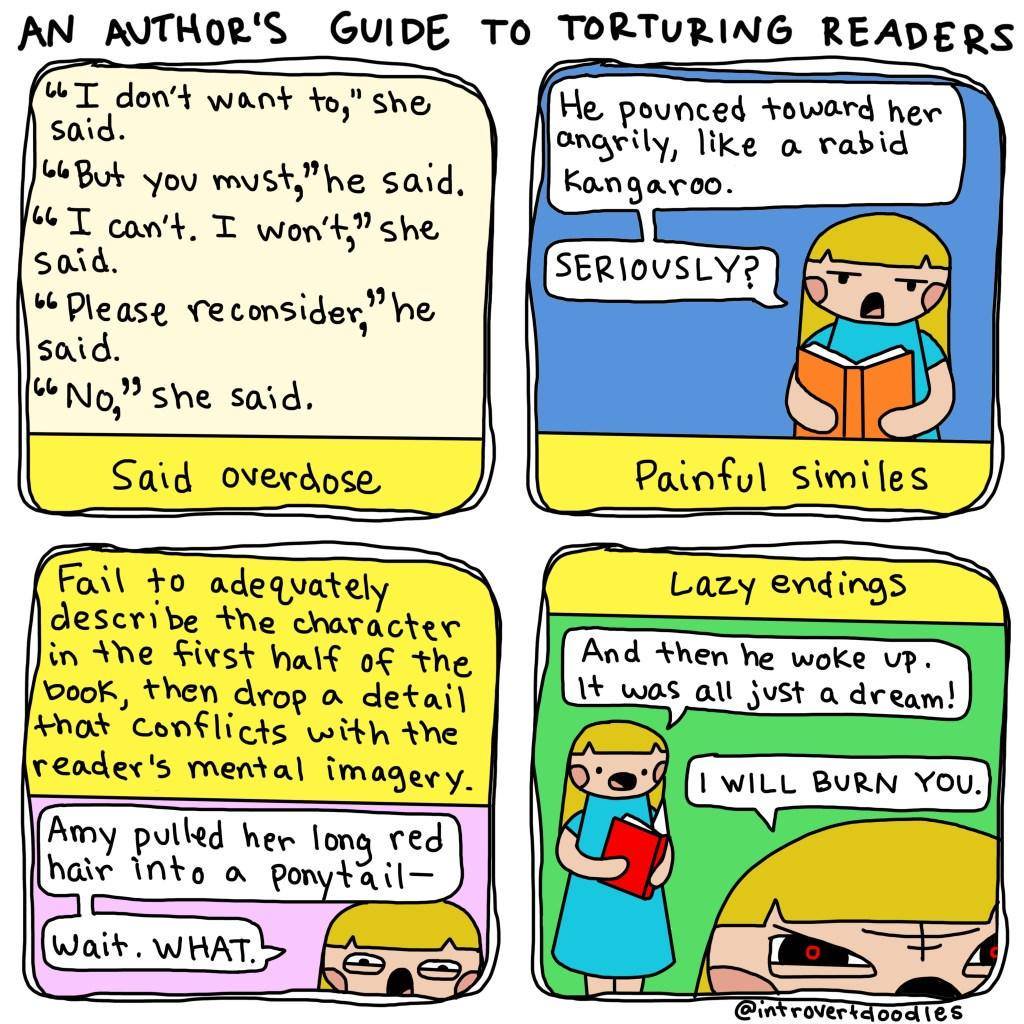 AN AUTHOR'S GUIDE TO TORTURING READERS
"I don't want to," she
said.
"But you must," he said.
"I can't. I won't," she
said.
"Please reconsider," he
said.
"No," she said.
Said overdose
He pounced toward her
angrily, like a rabid
kangaroo.
SERIOUSLY?
Painful similes
Fail to adequately
describe the character
in the first half of the
book, then drop a detail
that conflicts with the
reader's mental imagery.
Amy pulled her long red
hair into a ponytail—
Wait. WHAT.
Lazy endings
And then he woke up.
It was all just a dream!
I WILL BURN YOU.
@introvertdoodles